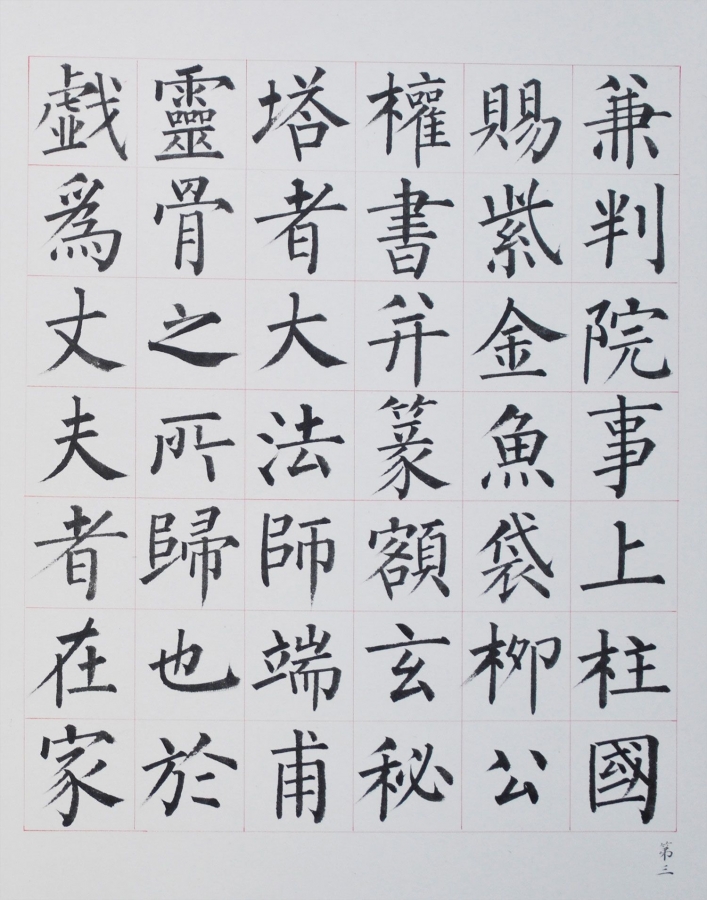 兼判院事上柱國
賜紫金魚袋柳公
權書并篆額玄秘
塔者大法師端甫
靈骨之所歸也於
戲為丈夫者在家
第三